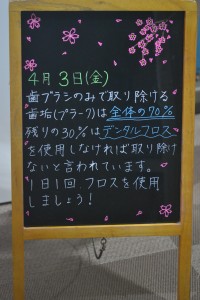 4月3日(金)
歯ブラシのみで取り除ける
歯垢(プラーク)は全体の70%
残りの30%はデンタルフロス
を使用しなければ取り除け
ないと言われています。
1日1回、フロスを使用
しましょう!